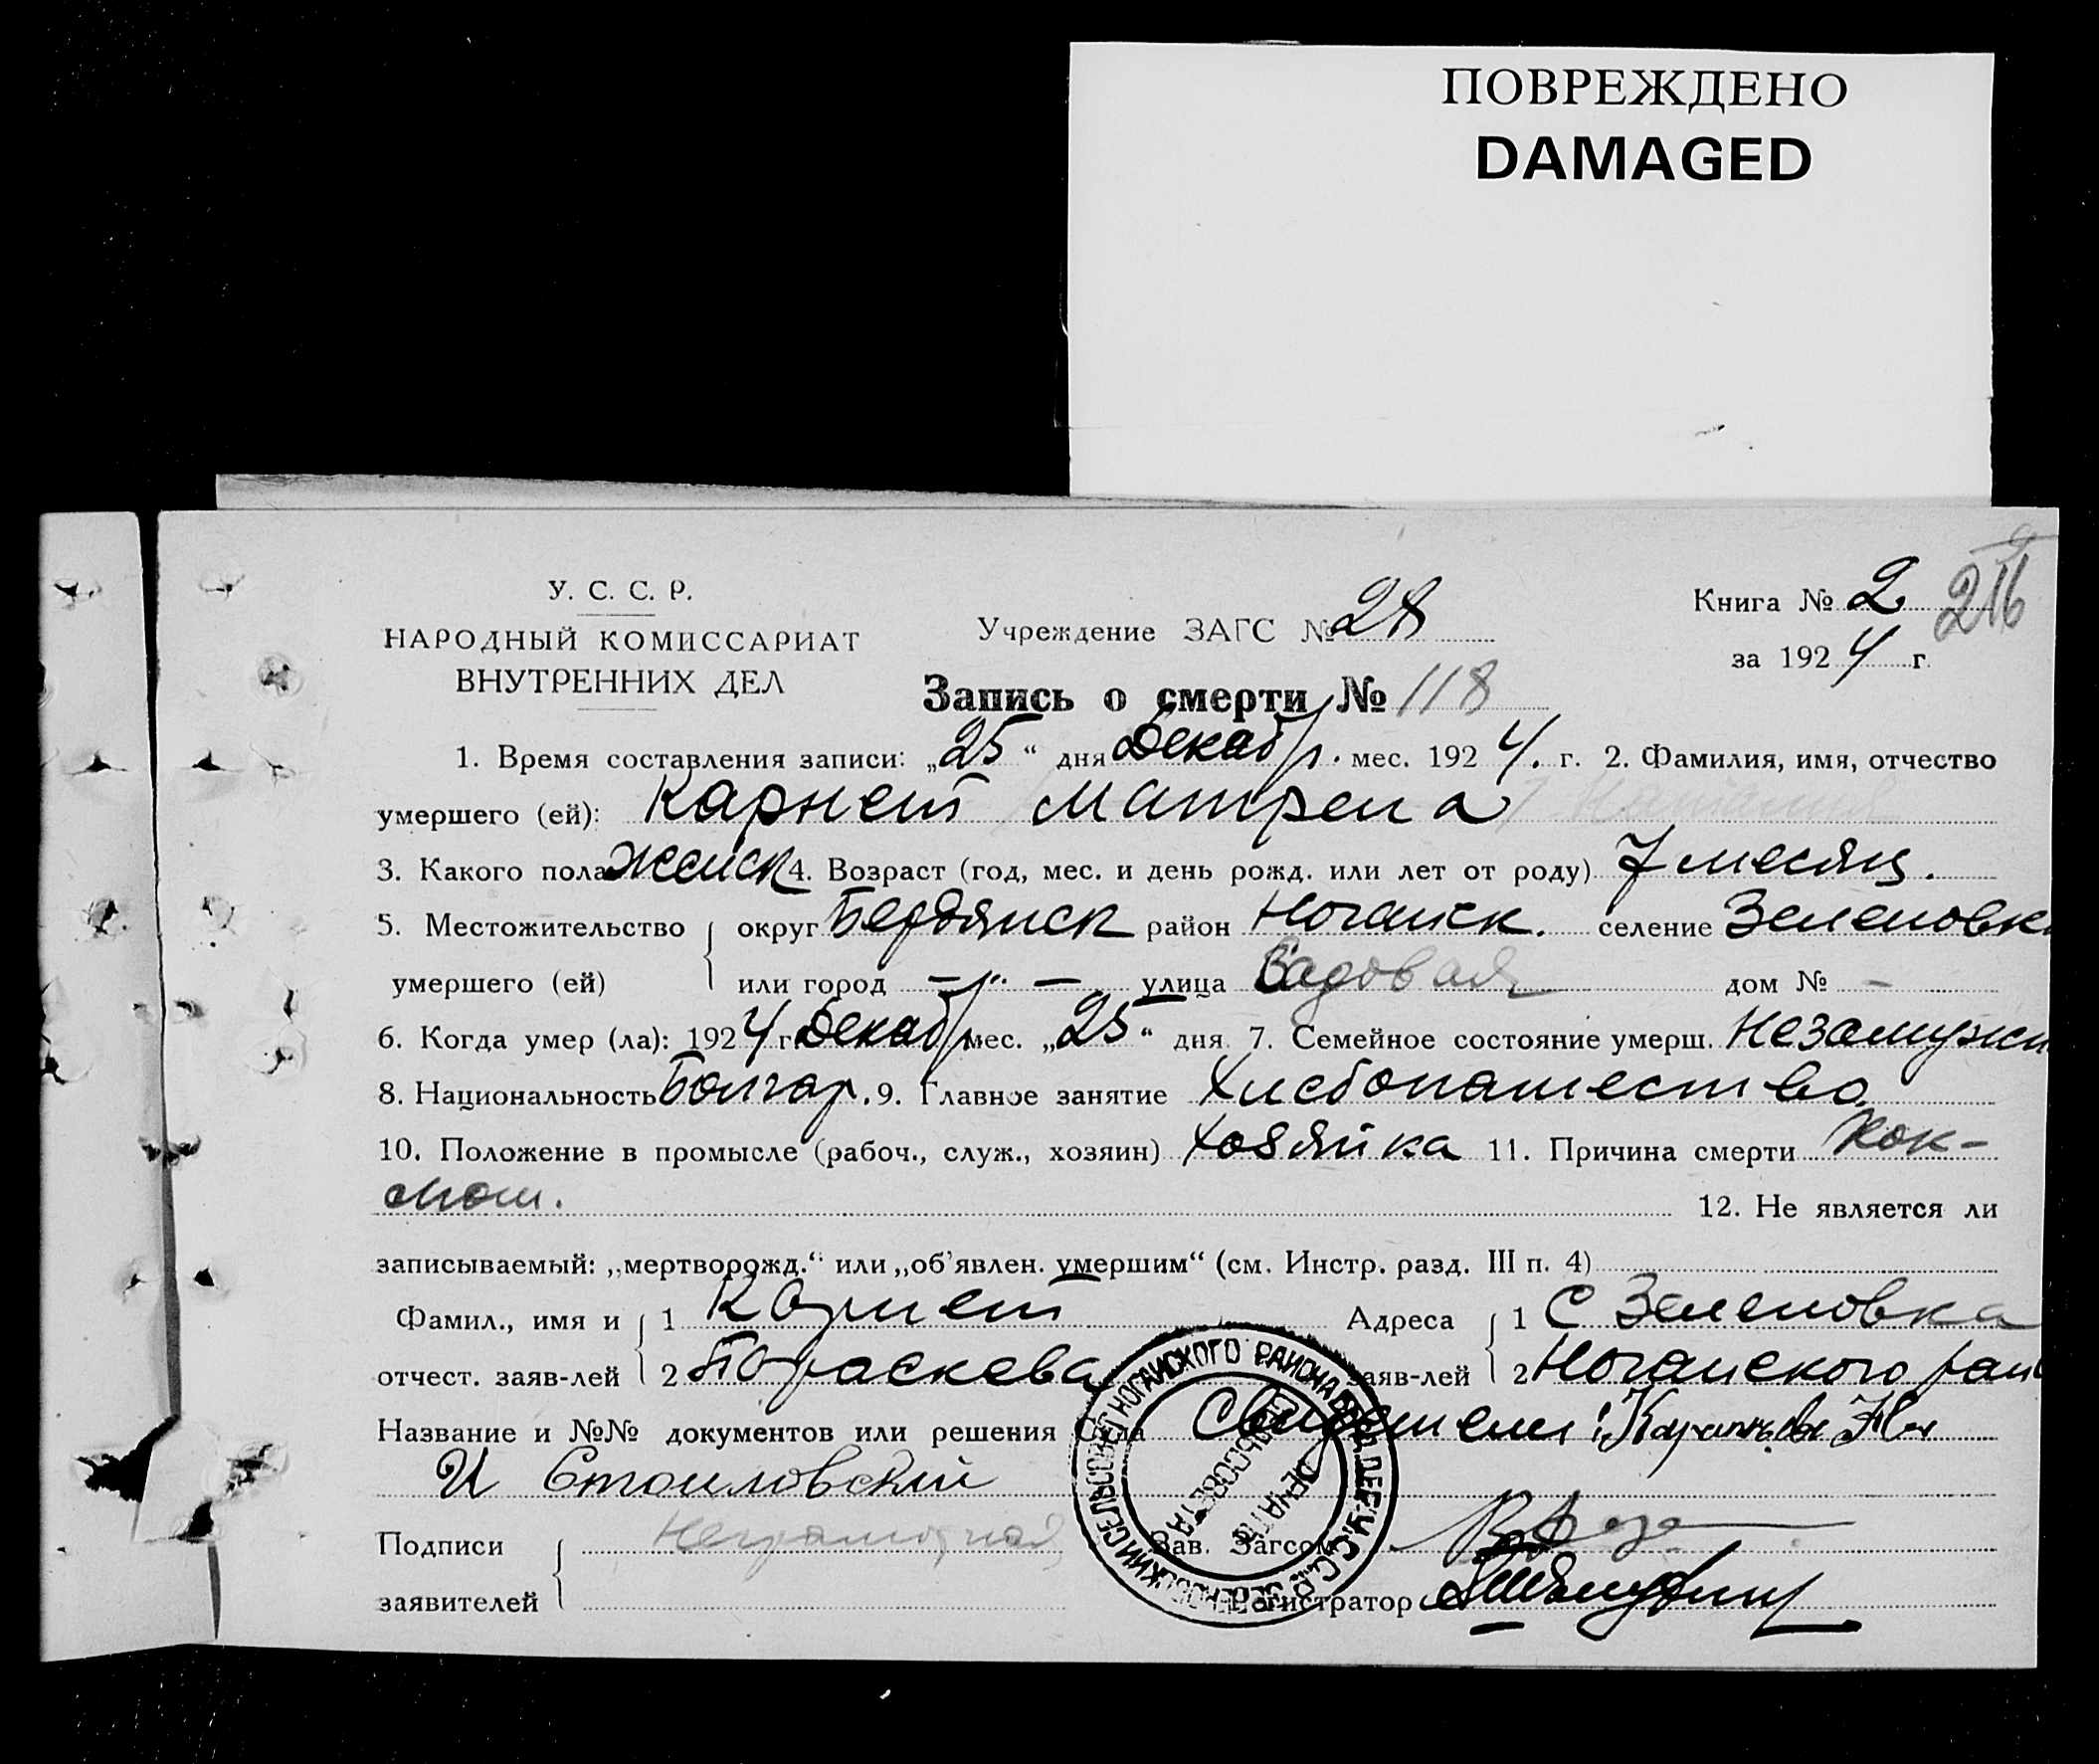 ПОВРЕЖДЕНО
DAMAGED
У. С. С. Р.
НАРОДНЫЙ КОМИССАРИАТ
ВНУТРЕННИХ ДЕЛ
Учреждение ЗАГС № 28
Книга № 2
216
за 1924 г.
Запись о смерти № 118
1. Время составления записи: „25“ дня Декабр. мес. 1924. г. 2. Фамилия, имя, отчество
умершего (ей): Карнет Матрена
3. Какого пола Женск 4. Возраст (год, мес. и день рожд. или лет от роду) 7 месяц.
5. Местожительство округ Бердянск район Ногайск. селение Зеленовк
умершего (ей) или город улица Садовая дом № –
6. Когда умер (ла): 1924 г. Декабр мес. „25“ дня 7. Семейное состояние умерш. Незамужн
8. Национальность Болгар. 9. Главное занятие Хлебопашество
10. Положение в промысле (рабоч., служ., хозяин) Хозяйка 11. Причина смерти Кок-
люш.
12. Не является ли
записываемый: „мертворожд.“ или „об'явлен. умершим“ (см. Инстр. разд. III п. 4)
Фамил., имя и 1 Карнет Адреса 1 С Зеленовка
отчест. заяв-лей 2 Параскева заяв-лей 2 Ногайского рай
Название и №№ документов или решения Суда Свидетели:
И Стоиловский
Подписи Неграмотная Зав. Загсом
заявителей Регистратор
ЗЕЛЕНОВСКИЙ СЕЛЬСОВЕТ НОГАЙСКОГО РАЙОНА